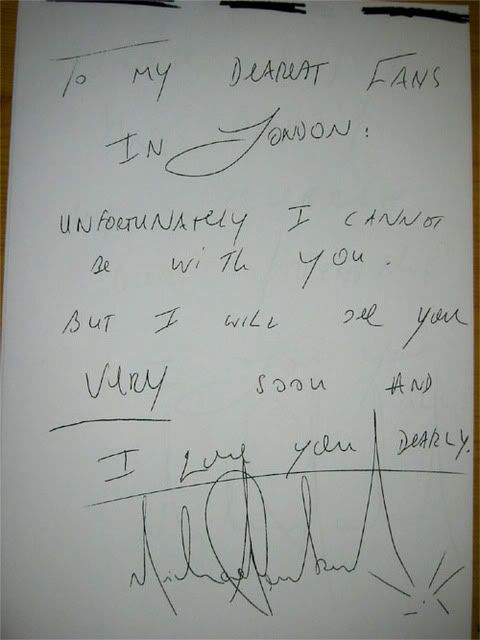 To MY DEAREST FANS
IN LONDON:
UNFORTUNATELY I CANNOT
BE WITH YOU.
BUT I WILL see you
VERY soon AND
I Love you DEARLY.
Michael Jackson